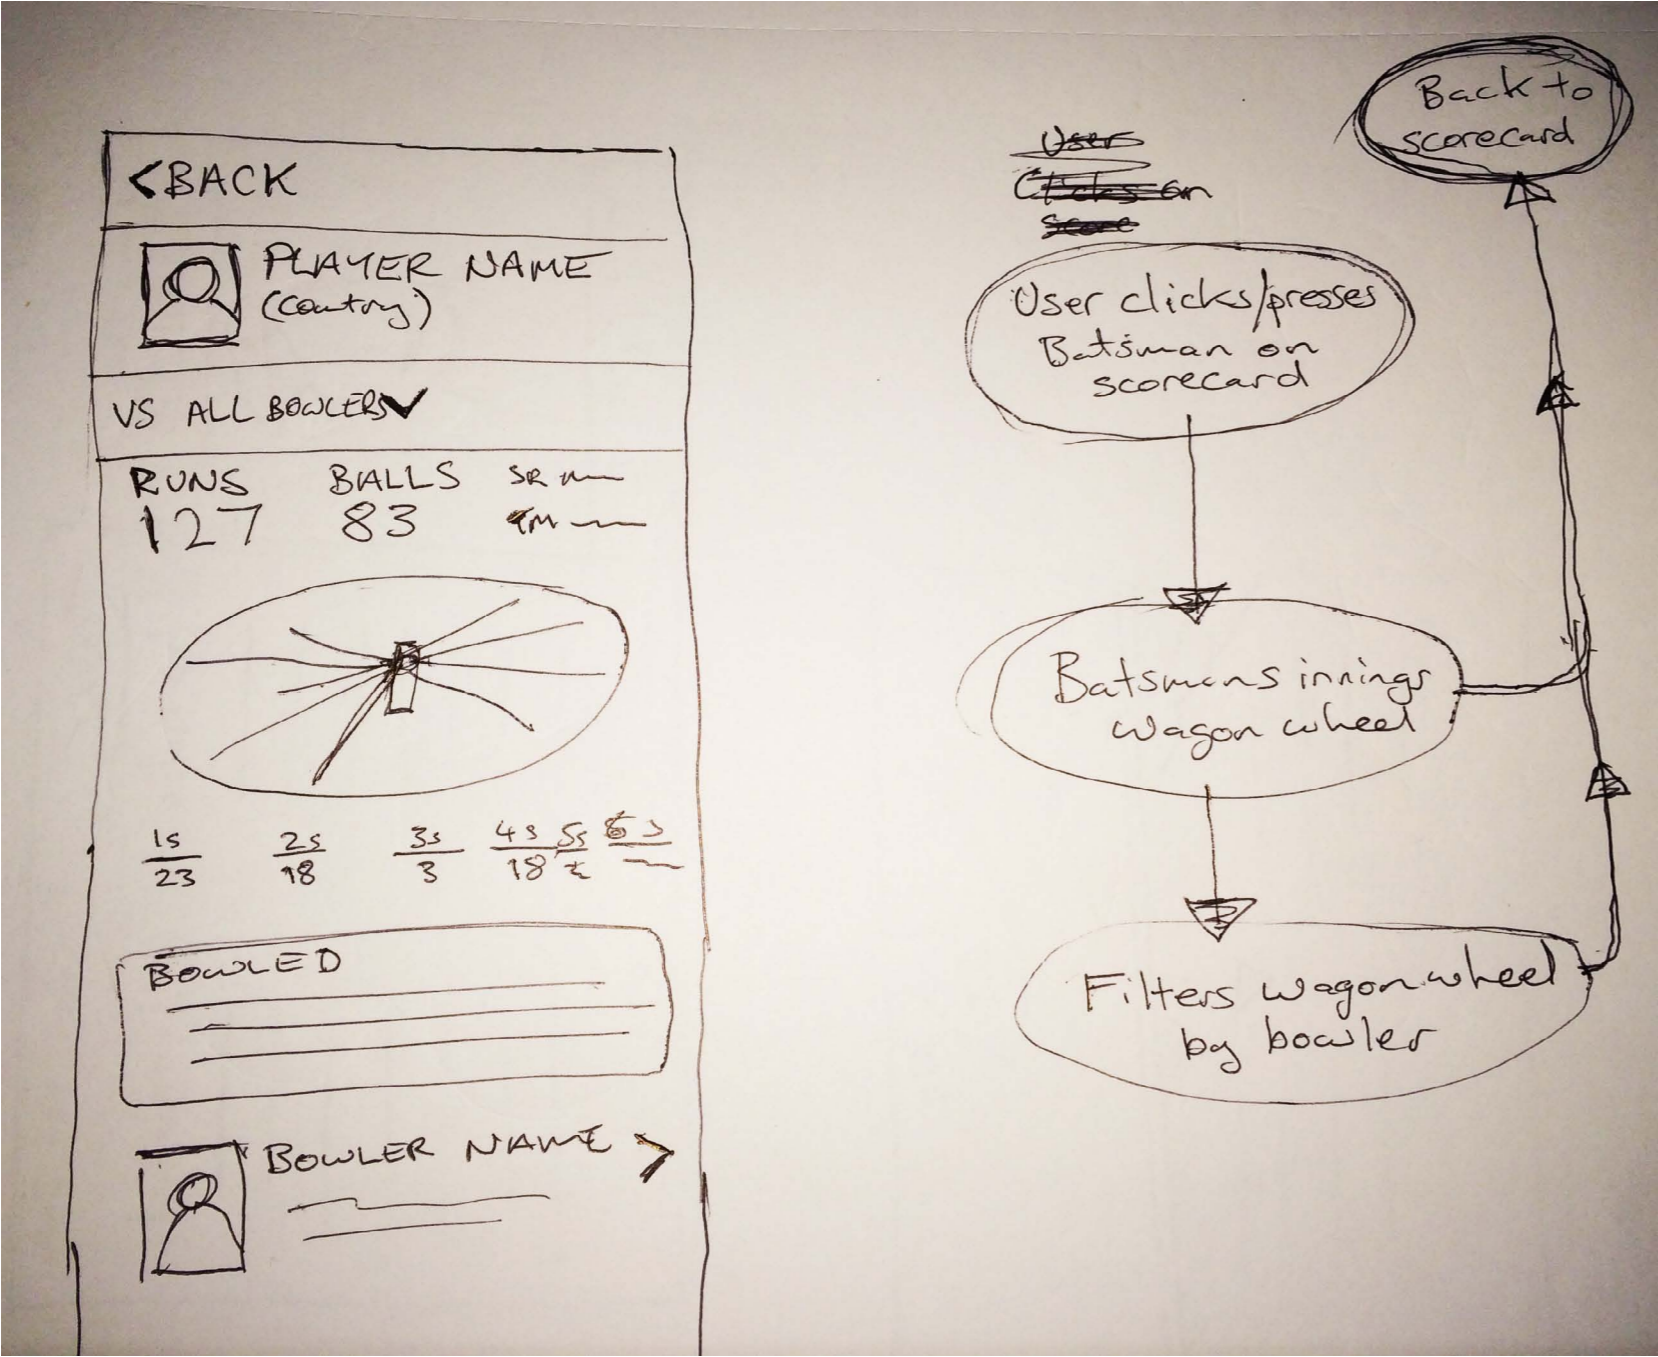 <BACK
PLAYER NAME
(country)
VS ALL BOWLERS
RUNS BALLS SR
127 83
1s 2s 3s 4s 5s 6s
23 18 3 18
BOWLED
BOWLER NAME >
Back to
scorecard
User
Clicks on
score
User clicks/presses
Batsman on
scorecard
Batsmans innings
wagon wheel
Filters wagon wheel
by bowler